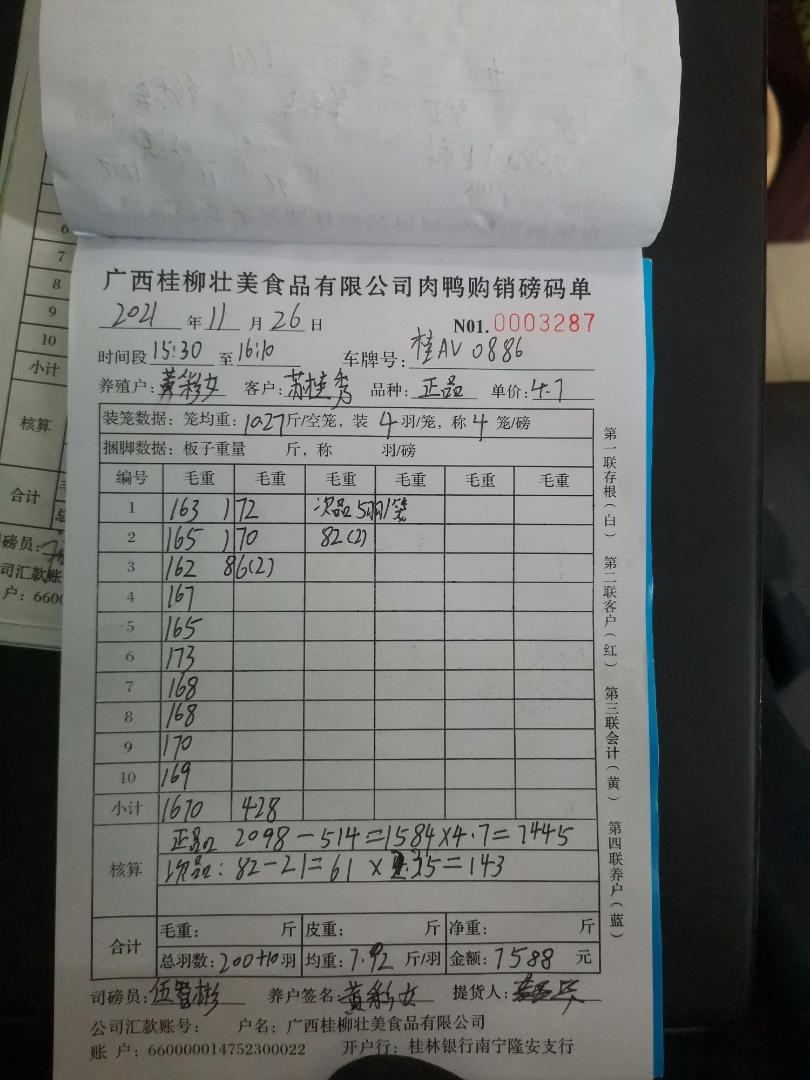 6
7
8
9
10
小计
核算
合计
磅员:
司汇款账
户: 6600
广西桂柳壮美食品有限公司肉鸭购销磅码单
2021 年 11 月 26 日 N01. 0003287
时间段 15:30 至 16:10 车牌号: 桂AV 0886
养殖户: 黄彩女 客户: 苏桂秀 品种: 正品 单价: 4.7
装笼数据: 笼均重: 10.27 斤/空笼, 装 4 羽/笼, 称 4 笼/磅
捆脚数据: 板子重量 斤, 称 羽/磅
编号 毛重 毛重 毛重 毛重 毛重 毛重
1 163 172 次品 5羽/笼
2 165 170 82(2)
3 162 86(2)
4 167
5 165
6 173
7 168
8 168
9 170
10 169
小计 1670 428
核算 正品 2098-514=1584×4.7=7445
次品: 82-21=61×2.35=143
合计 毛重: 斤 皮重: 斤 净重: 斤
总羽数: 200+10 羽 均重: 7.92 斤/羽 金额: 7588 元
司磅员: 伍智彬 养户签名: 黄彩女 提货人:
公司汇款账号: 户名: 广西桂柳壮美食品有限公司
账 户: 660000014752300022 开户行: 桂林银行南宁隆安支行
第一联存根(白) 第二联客户(红) 第三联会计(黄) 第四联养户(蓝)